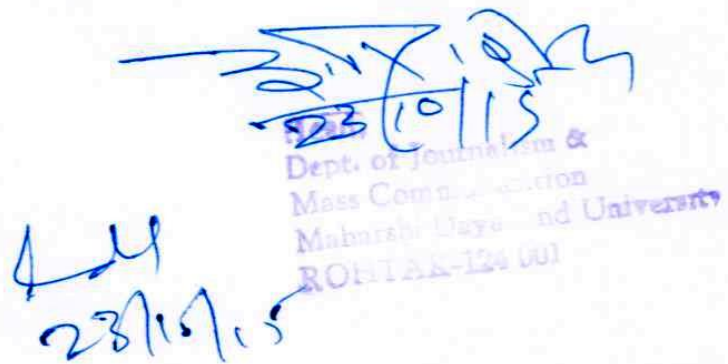 23/10/15
Head,
Dept. of Journalism &
Mass Communication
Maharshi Dayanand University
ROHTAK-124 001
23/10/15